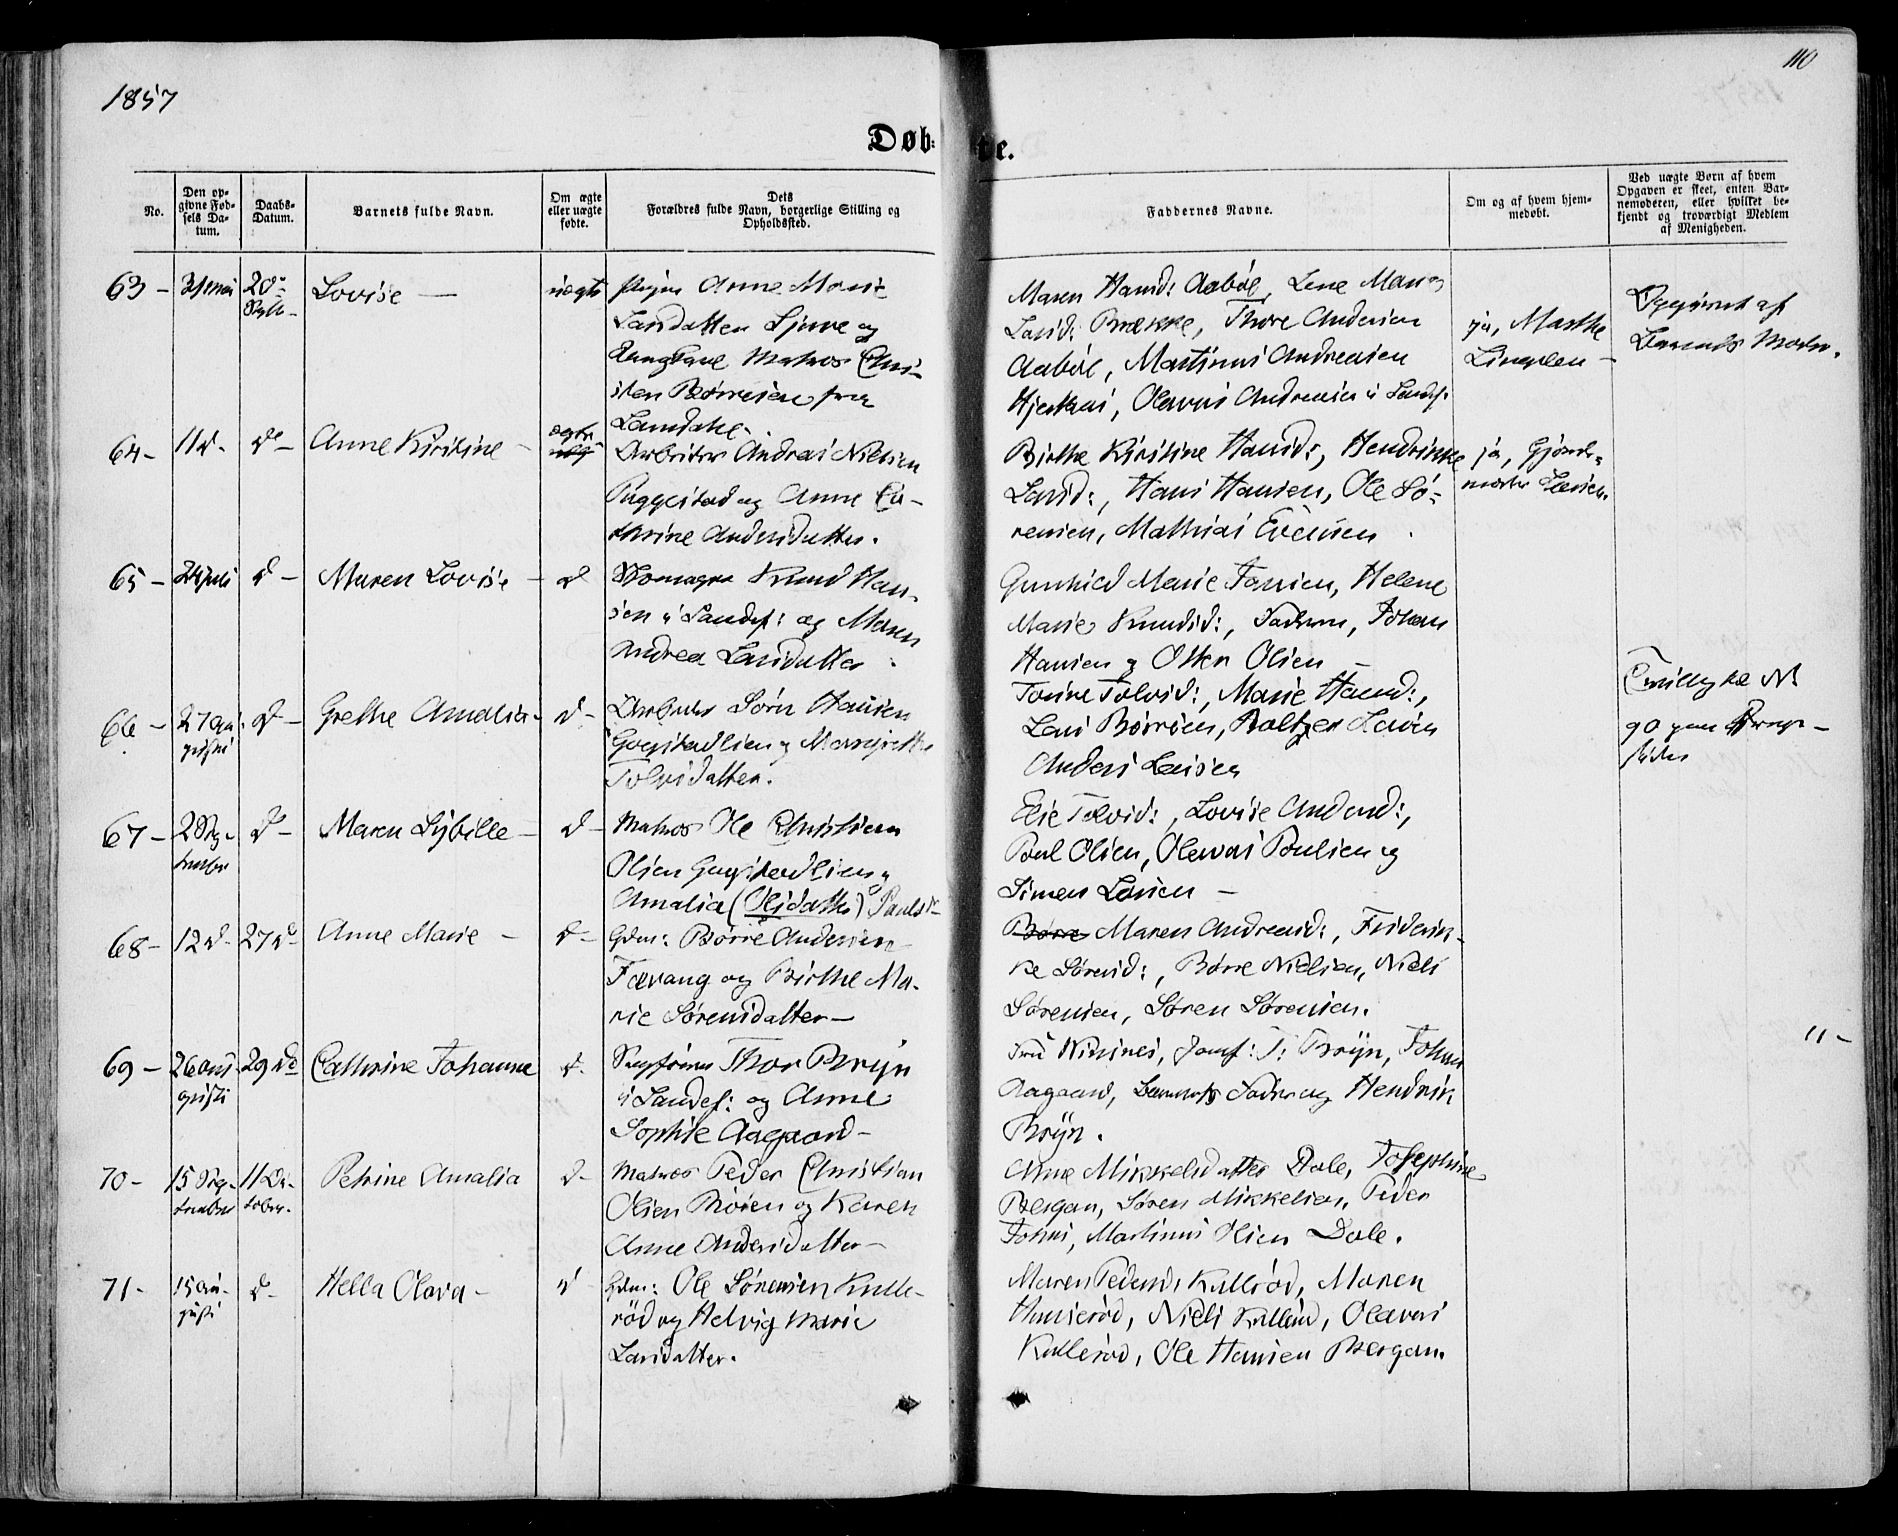 1857
110
Døb:
te.
No.
Den op-
givne Fød-
sels Da-
tum.
Daabs-
Datum.
Barnets fulde Navn.
Om ægte
eller uægte
fødte.
Dets
Forældres fulde Navn, borgerlige Stilling og
Opholdssted.
Faddernes Navne.
Om og af hvem hjem-
medøbt.
Ved uægte Børn af hvem
Opgaven er skeet, enten Bar-
nemoderen, eller hvilket be-
kjendt og troværdigt Medlem
af Menigheden.
63 -
20de
Septb-
Lovise -
uægte
Pigen Anne Marie
Larsdatten Sjuve og
Ungkarl Matros Chri-
sten Børresen fra
Laurdahl.
Maren Hansd: Aabøl, Lene Marie
Larsd: Brække, Thore Andersen
Aabøl, Martinus Andreasen
Hjertnæs, Olavus Andreasen i Sandf.
ja, Marthe
Opgivet af
Barnets Moder.
64 -
11 d-
do -
Anne Kirstine -
ægte
Arbeider Andreas Nielsen
Puggestad og Anne Ca-
thrine Andersdatter.
Birthe Kirstine Hansd:, Hendrikke
Larsd:, Hans Hansen, Ole Sø-
rensen, Mathias Evensen
ja, Gjord-
moder Larsen.
65 -
24 juli
d -
Maren Lovise -
d
Skomager Knud Han-
sen i Sandef: og Maren
Andrea Larsdatter.
Gunhild Marie Larsen, Helene
Marie Knudsd:, Faderen, Johan
Hansen og Olsen -
66 -
27 au-
gusti
d -
Grethe Amalia -
d -
Arbeider Søren Hansen
Gogstadlien og Margrethe
Tolvsdatter.
Torine Tolvsd:, Marie Hansd:,
Lars Børresen, Baltzer Larsen
Anders Larsen
Tvilling se No
90 paa Drenge-
siden
67 -
2 Sep-
tember
d -
Maren Sybille -
d -
Matros Ole Christian
Olsen Gogstadlien og
Amalia (Olsdatter) Paulsd-
Elie Tolvsd:, Lovise Andersd:,
Poul Olsen, Olavus Poulsen og
Simen Larsen -
68 -
12 d-
27 d
Anne Marie -
d -
Gdm: Børre Andersen
Furvang og Birthe Ma-
rie Sørensdatter -
Børre Maren Andreasd:, Friderik-
ke Sørensd:, Børre Nielsen, Niels
Sørensen, Søren Sørensen.
69 -
26 au-
gusti
29 de
Cathrine Johanne
d -
Thor Bryn
i Sandef: og Anne
Sophie Aagaard -
Fru Jomf: T: Bryn, Johan
Aagaard, Barnets Fader og Hendrik
Bryn.
11 -
70 -
15 Sep-
tember
11 Oc-
tober.
Petrine Amalia
d -
Matros Peder Christian
Olsen Moren og Karen
Anne Andersdatter -
Anne Mikkelsdatter Dale, Josephine
Bergan, Søren Mikkelsen, Peder
Johns, Martinus Olsen Dale.
71 -
15 au-
gusti
d -
Hella Olava -
d -
Gdm: Ole Sørensen Kulle-
rød og Helvig Marie
Larsdatter.
Maren Pedersd: Kullerød, Maren
Hauserød, Niels Kullerød, Olavus
Kullerød, Ole Hansen Bergan.